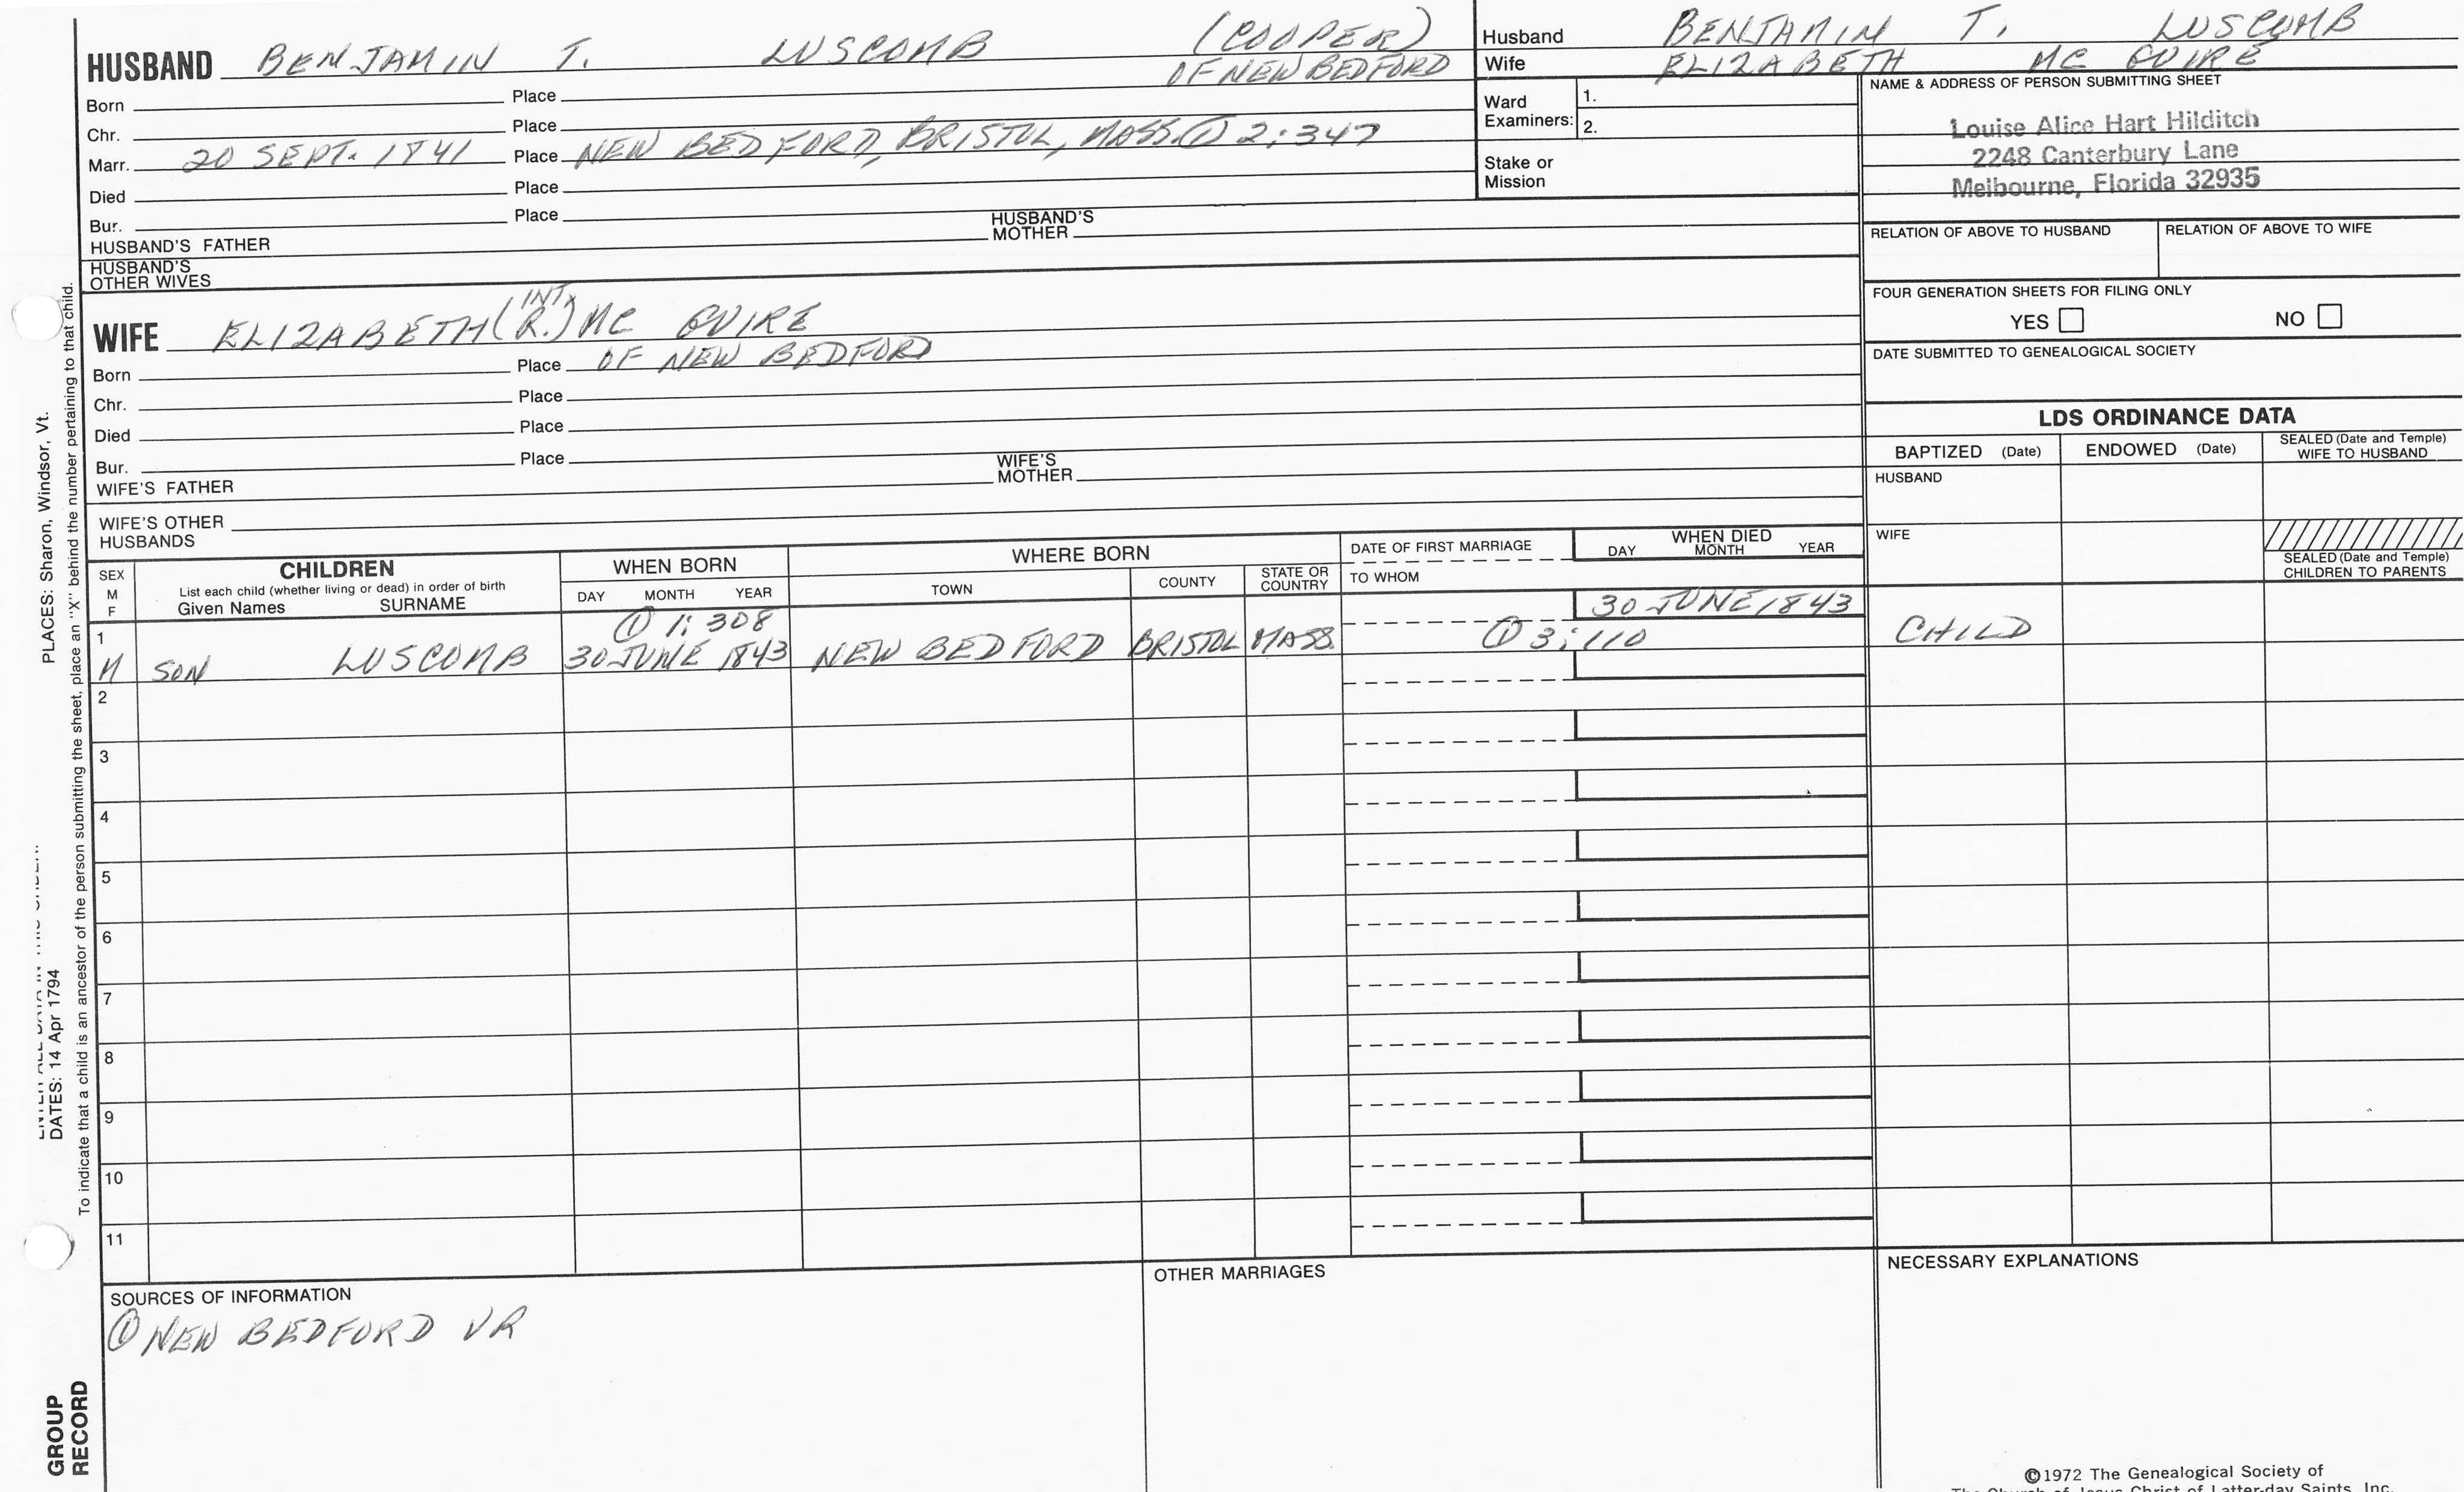 HUSBAND BENJAMIN T. LUSCOMB (COOPER) OF NEW BEDFORD
Born Place
Chr. Place
Marr. 20 SEPT. 1841 Place NEW BEDFORD, BRISTOL, MASS. ① 2:347
Died Place
Bur. Place
HUSBAND'S FATHER HUSBAND'S MOTHER
HUSBAND'S OTHER WIVES
Husband BENJAMIN T. LUSCOMB
Wife ELIZABETH MC GUIRE
Ward Examiners: 1.
2.
Stake or Mission
NAME & ADDRESS OF PERSON SUBMITTING SHEET
Louise Alice Hart Hilditch
2248 Canterbury Lane
Melbourne, Florida 32935
RELATION OF ABOVE TO HUSBAND RELATION OF ABOVE TO WIFE
FOUR GENERATION SHEETS FOR FILING ONLY
YES NO
DATE SUBMITTED TO GENEALOGICAL SOCIETY
WIFE ELIZABETH (INT. R.) MC GUIRE
Born Place OF NEW BEDFORD
Chr. Place
Died Place
Bur. Place
WIFE'S FATHER WIFE'S MOTHER
WIFE'S OTHER HUSBANDS
LDS ORDINANCE DATA
BAPTIZED (Date) ENDOWED (Date) SEALED (Date and Temple) WIFE TO HUSBAND
HUSBAND
WIFE
SEALED (Date and Temple) CHILDREN TO PARENTS
SEX M F
CHILDREN
List each child (whether living or dead) in order of birth
Given Names SURNAME
WHEN BORN
DAY MONTH YEAR
WHERE BORN
TOWN COUNTY STATE OR COUNTRY
DATE OF FIRST MARRIAGE
TO WHOM
WHEN DIED
DAY MONTH YEAR
1 ① 1:308 30 JUNE 1843
M SON LUSCOMB 30 JUNE 1843 NEW BEDFORD BRISTOL MASS. ① 3:110 CHILD
2
3
4
5
6
7
8
9
10
11
SOURCES OF INFORMATION
① NEW BEDFORD VR
OTHER MARRIAGES
NECESSARY EXPLANATIONS
©1972 The Genealogical Society of
The Church of Jesus Christ of Latter-day Saints, Inc.
PLACES: Sharon, Windsor, Vt.
DATES: 14 Apr 1794
To indicate that a child is an ancestor of the person submitting the sheet, place an "X" behind the number pertaining to that child.
GROUP
RECORD